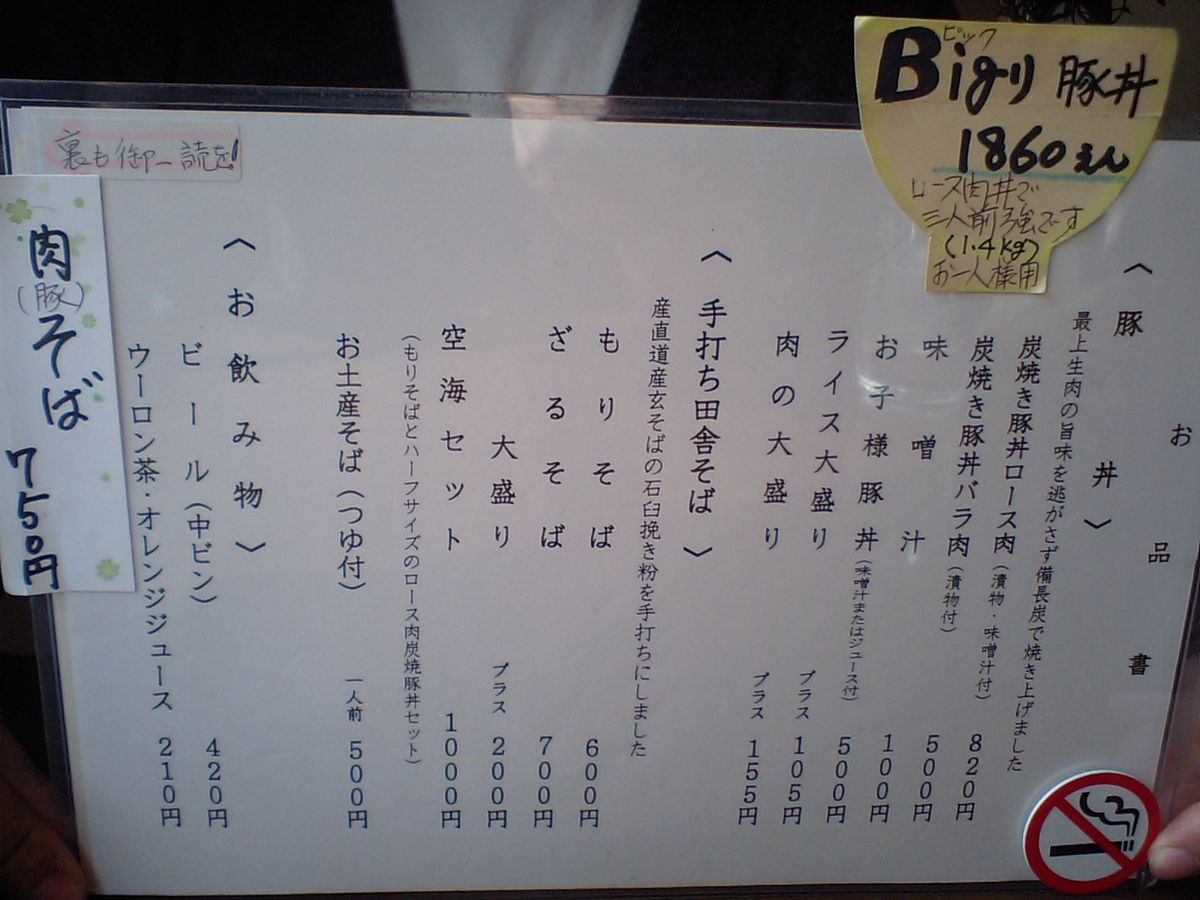 Bigり豚丼
ビック
1860えん
ロース肉丼で
三人前強です
(1.4kg)
お一人様用
お品書
〈豚丼〉
最上生肉の旨味を逃がさず備長炭で焼き上げました
炭焼き豚丼ロース肉(漬物・味噌汁付) 820円
炭焼き豚丼バラ肉(漬物付) 500円
味噌汁 100円
お子様豚丼(味噌汁またはジュース付) 500円
ライス大盛り プラス 105円
肉の大盛り プラス 155円
〈手打ち田舎そば〉
産直道産玄そばの石臼挽き粉を手打ちにしました
もりそば 600円
ざるそば 700円
大盛り プラス 200円
空海セット 1000円
(もりそばとハーフサイズのロース肉炭焼豚丼セット)
お土産そば(つゆ付) 一人前 500円
〈お飲み物〉
ビール(中ビン) 420円
ウーロン茶・オレンジジュース 210円
裏も御一読を!
肉(豚)そば 750円